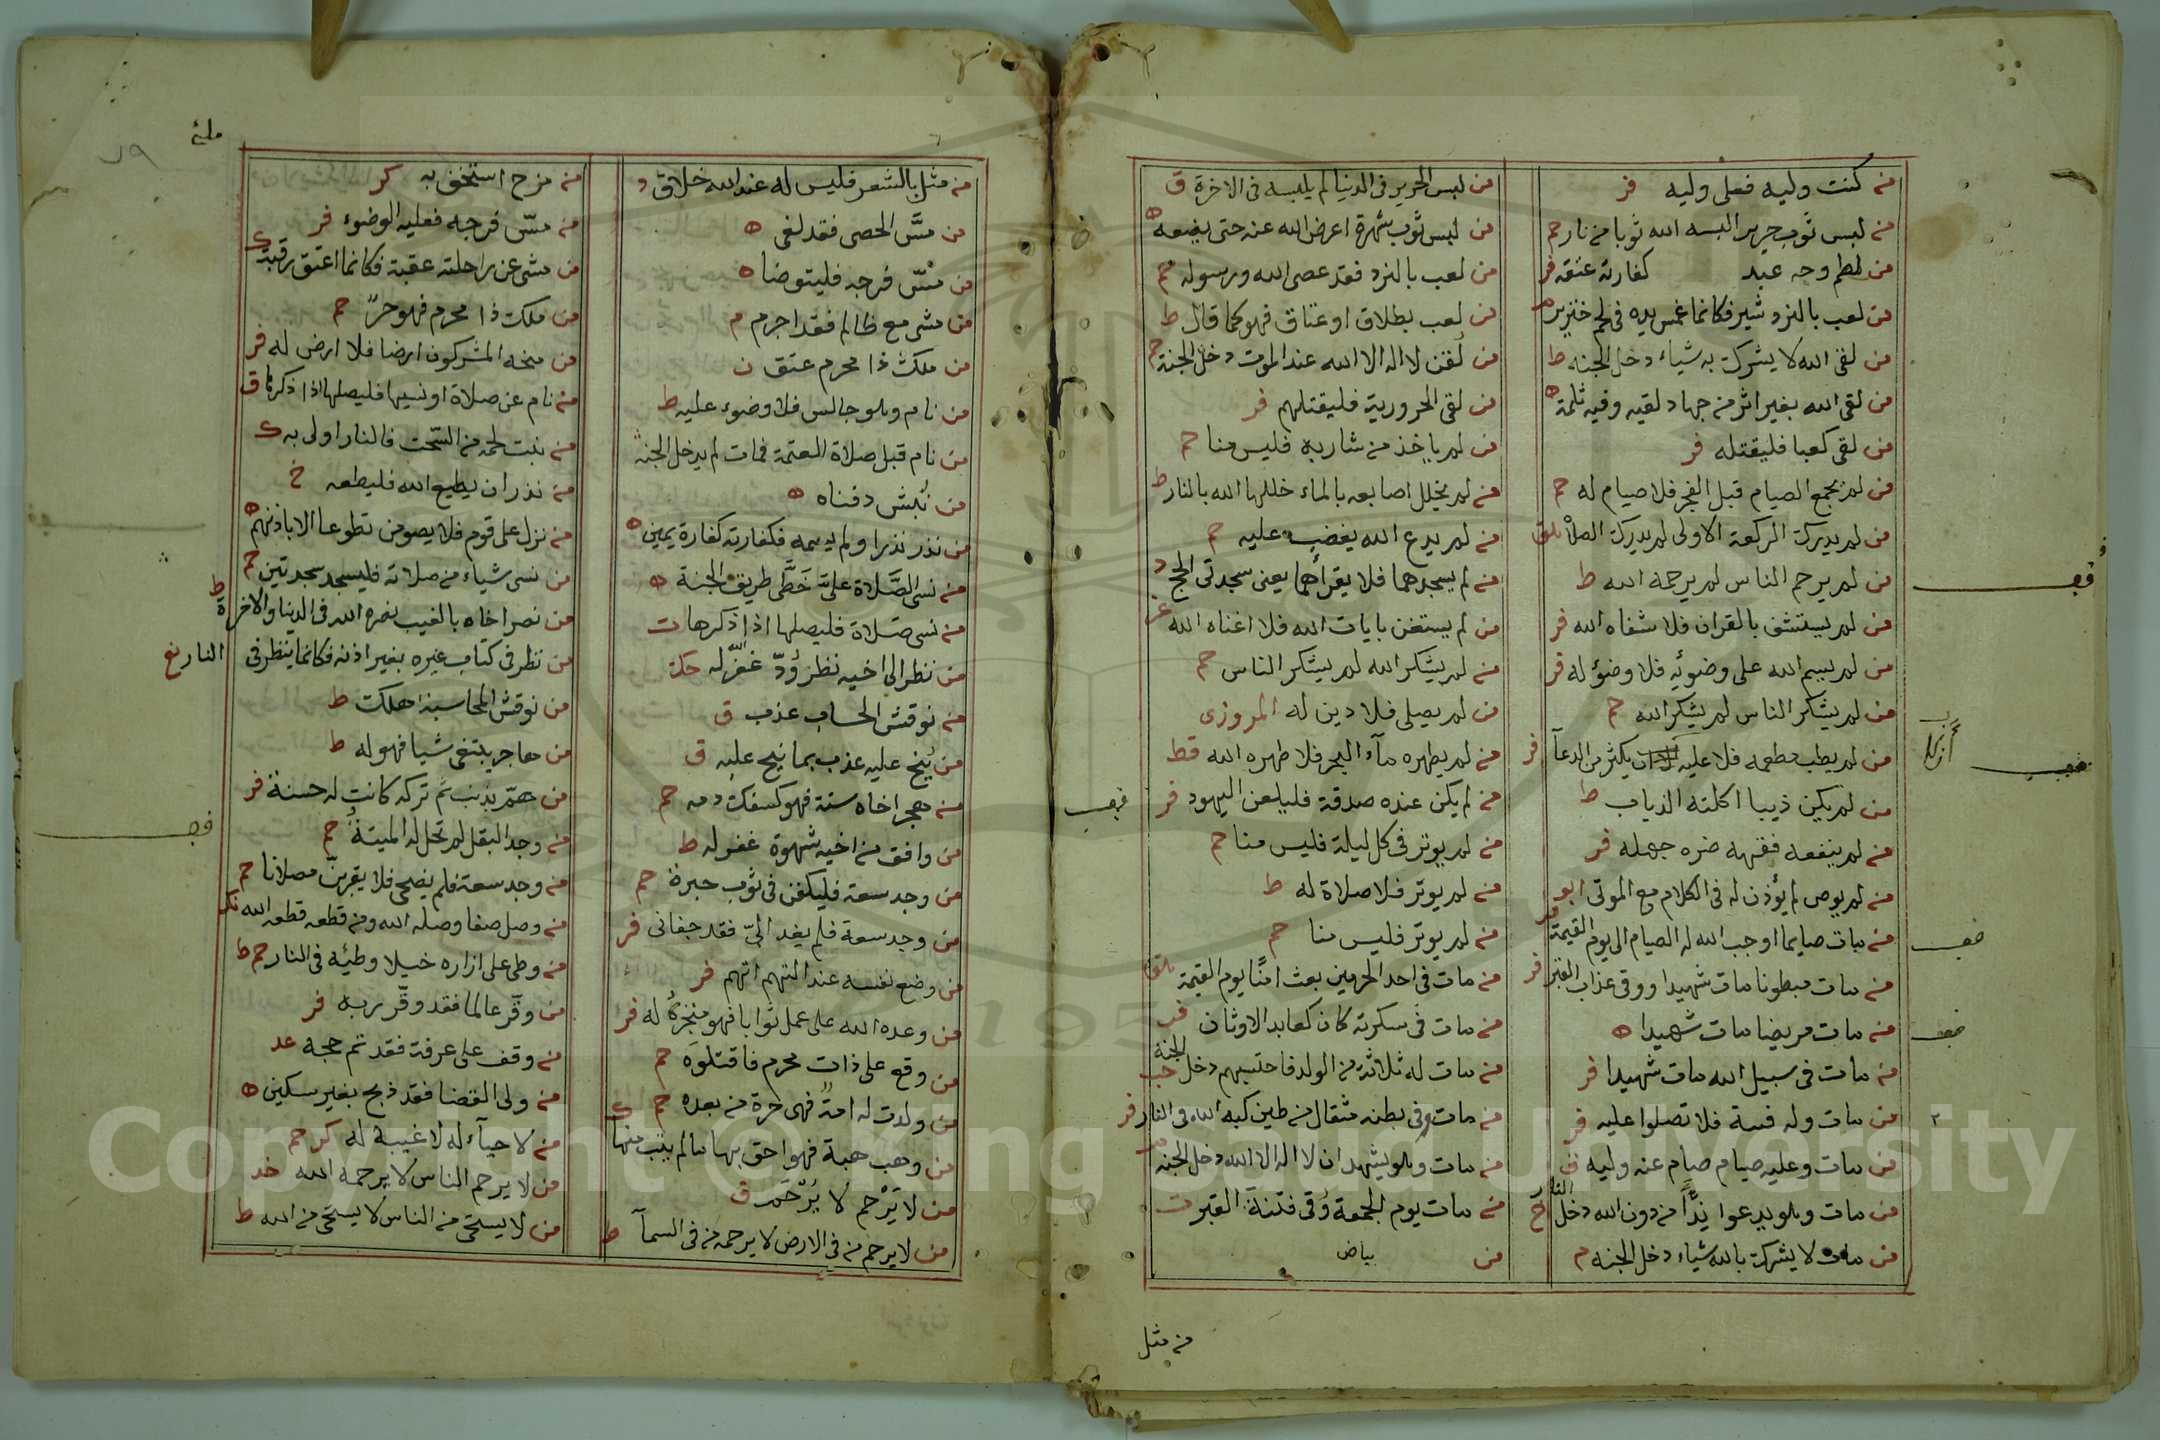 من كنت وليه فعلى وليه فر
من لبس ثوب حرير البسه الله ثوبا من نار حم
من لطم وجه عبد كفارته عتقه فر
من لعب بالنرد شير فكانما غمس يده فى لحم خنزير م
من لقى الله لا يشرك به شياء دخل الجنه ط
من لقى الله بغير اثر من جهاد لقيه وفيه ثلمة ه
من لقى كعبا فليقتله فر
من لم يجمع الصيام قبل الفجر فلا صيام له حم
من لم يدرك الركعة الاولى لم يدرك الصلاة
من لم يرحم الناس لم يرحمه الله ط
من لم يستشف بالقران فلا شفاه الله فر
من لم يسم الله على وضوئه فلا وضؤ له فر
من لم يشكر الناس لم يشكر الله حم
من لم يطب مطعمه فلا عليه يكثر من الدعآ فر
من لم يكن ذيبا اكلته الذياب ط
من لم ينفعه فقهه ضره جهله فر
من لم يوص لم يؤذن له فى الكلام مع الموتى ابو
من مات صايما اوجب الله له الصيام الى يوم القيمة فر
من مات مبطونا مات شهيدا ووقى عذاب القبر فر
من مات مريضا مات شهيدا ه
من مات فى سبيل الله مات شهيدا فر
من مات وله قينة فلا تصلوا عليه فر
من مات وعليه صيام صام عنه وليه ق
من مات وهو يدعوا ندًّا من دون الله دخل النار خ
من مات لا يشرك بالله شياء دخل الجنه م
من لبس الحرير فى الدنيا لم يلبسه فى الاخرة ق
من لبس ثوب شهرة اعرض الله عنه حتى يضعه ه
من لعب بالنرد فقد عصى الله ورسوله حم
من لعب بطلاق او عتاق فهو كما قال ط
من لُقن لا اله الا الله عند الموت دخل الجنة حم
من لقى الحرورية فليقتلهم فر
من لم ياخذ من شاربه فليس منا حم
من لم يخلل اصابعه بالماء خللها الله بالنار ط
من لم يدع الله يغضب عليه حم
من لم يسجدهما فلا يقرأهما يعنى سجدتى الحج د
من لم يستغن بايات الله فلا اغناه الله
من لم يشكر الله لم يشكر الناس حم
من لم يصلى فلا دين له المروزى
من لم يطهره مآء البحر فلا طهره الله قط
من لم يكن عنده صدقة فليلعن اليهود فر
من لم يوتر فى كل ليلة فليس منا حم
من لم يوتر فلا صلاة له ط
من لم يوتر فليس منا حم
من مات فى احد الحرمين بعث امنًا يوم القيمة
من مات فى سكرته كان كعابد الاوثان
من مات له ثلاثة من الولد فاحتسبهم دخل الجنة حب
من مات وفى بطنه مثقال من طين كبه الله فى النار فر
من مات وهو يشهد ان لا اله الا الله دخل الجنه م
من مات يوم الجمعة وُقى فتنة القبر ت
من بياض
من مثل
من مثل بالشعر فليس له عند الله خلاق
من مسَّ الحصى فقد لغى ه
من مسّ فرجه فليتوضا ه
من مشى مع ظالم فقد اجرم م
من ملك ذا محرم عتق ن
من نام وهو جالس فلا وضوء عليه ط
من نام قبل صلاة العتمة فمات لم يدخل الجنة
من نُبش دفناه ه
من نذر نذرا ولم يسمه فكفارته كفارة يمين ه
من نسى الصَّلاة علىَّ خَطَّى طريق الجنة ه
من نسى صَلاة فليصلها اذا ذكرها ت
من نظر الى اخيه نظر وُدّ غفر له حك
من نوقش الحساب عذب ق
من يُنح عليه عذب بما نيح عليه ق
من هجر اخاه سنة فهو كسفك دمه حم
من وافق من اخيه شهوة غفر له ط
من وجد سعة فليكفن فى ثوب حبرة حم
من وجد سعة فلم يغد الىّ فقد جفانى فر
من وضع نفسه عند التهم اتهم فر
من وعده الله على عمل ثوابا فهو منجزه له فر
من وقع على ذات محرم فاقتلوه حم
من ولدت له امته فهى حرة من بعده حم
من وهب هبة فهو احق بها ما لم يثب منها
من لا يَرْحم لا يُرْحَم ق
من لا يرحم من فى الارض لا يرحمه من فى السمآ ط
من مزح استخف به كر
من مسّ فرجه فعليه الوضوء فر
من مشى عن راحلته عقبة فكانما اعتق رقبة
من ملك ذا محرم فهو حرّ حم
من منحه المشركون ارضا فلا ارض له فر
من نام عن صلاة او نسيها فليصلها اذا ذكرها ق
من نبت لحمه من السحت فالنار اولى به ك
من نذر ان يطيع الله فليطعه خ
من نزل على قوم فلا يصومن تطوعا الا باذنهم ه
من نسى شياء من صلاته فليسجد سجدتين حم
من نصر اخاه بالغيب نصره الله فى الدنيا والاخرة ط
من نظر فى كتاب غيره بغير اذنه فكانما ينظر فى النار
من نوقش المحاسبة اهلك ط
من هاجر يبتغى شيا فهو له ط
من همّ بذنب ثم تركه كانت له حسنة فر
من وجد البقل لم تحل له الميتة حم
من وجد سعة فلم يضحى فلا يقربنّ مصلانا حم
من وصل صفا وصله الله ومن قطعه قطعه الله نك
من وطى على ازاره خيلا وطئه فى النار حم ط
من وقّر عالما فقد وقّر ربه فر
من وقف على عرفة فقد تم حجه عد
من ولى القضا فقد ذبح بغير سكين ه
من لا حيآء له لا غيبة له كر حم
من لا يرحم الناس لا يرحمه الله خد
من لا يستحى من الناس لا يستحى من الله ط
Copyright © King Saud University